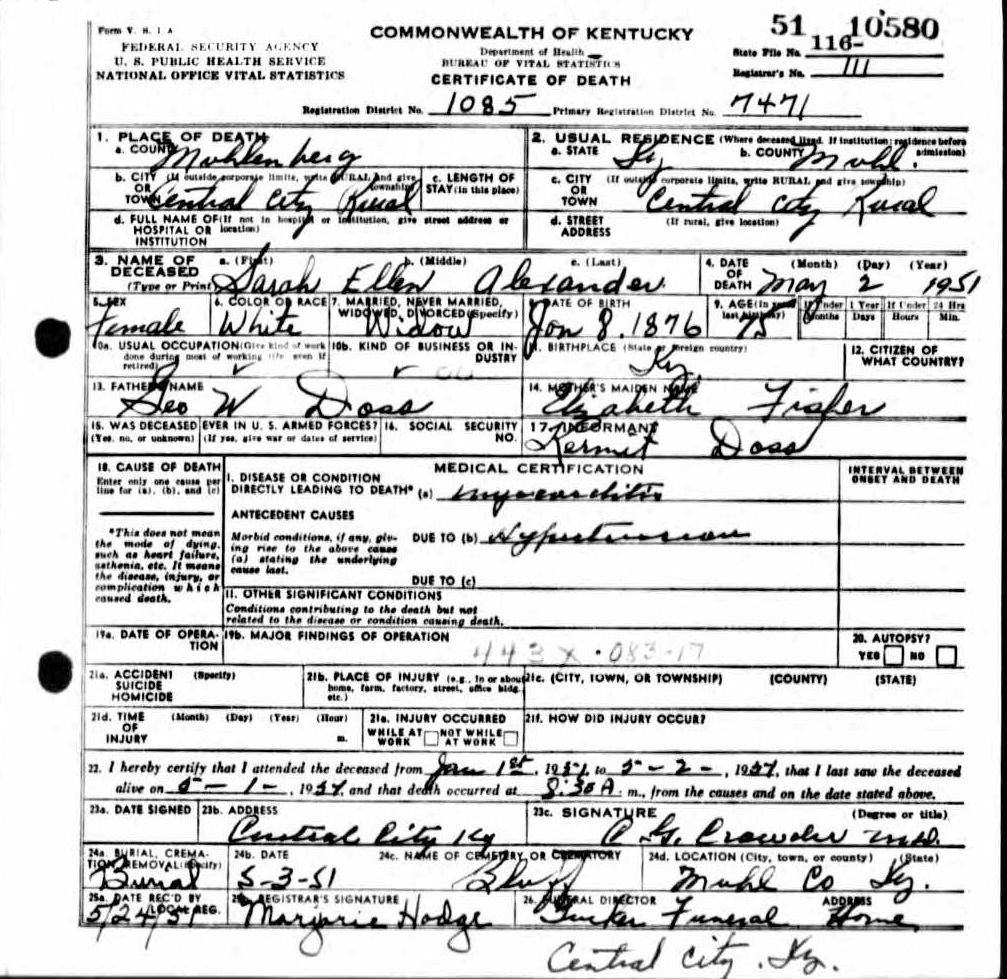 Form V. S. 1 A
FEDERAL SECURITY AGENCY
U. S. PUBLIC HEALTH SERVICE
NATIONAL OFFICE VITAL STATISTICS
COMMONWEALTH OF KENTUCKY
Department of Health
BUREAU OF VITAL STATISTICS
CERTIFICATE OF DEATH
51 10580
State File No. 116-
Registrar's No. 111
Registration District No. 1085 Primary Registration District No. 7471
1. PLACE OF DEATH
a. COUNTY Muhlenberg
2. USUAL RESIDENCE (Where deceased lived. If institution: residence before admission)
a. STATE Ky b. COUNTY Muhl.
b. CITY (If outside corporate limits, write RURAL and give township)
OR TOWN Central City Rural
c. LENGTH OF STAY (in this place)
c. CITY (If outside corporate limits, write RURAL and give township)
OR TOWN Central City Rural
d. FULL NAME OF (If not in hospital or institution, give street address or location)
HOSPITAL OR INSTITUTION
d. STREET ADDRESS (If rural, give location)
3. NAME OF DECEASED (Type or Print) a. (First) b. (Middle) c. (Last)
Sarah Ellen Alexander
4. DATE OF DEATH (Month) (Day) (Year)
May 2 1951
5. SEX Female
6. COLOR OR RACE White
7. MARRIED, NEVER MARRIED, WIDOWED, DIVORCED (Specify) Widow
DATE OF BIRTH Jan 8. 1876
9. AGE (In years last birthday) 75
If Under 1 Year Months Days
If Under 24 Hrs Hours Min.
10a. USUAL OCCUPATION (Give kind of work done during most of working life even if retired)
10b. KIND OF BUSINESS OR INDUSTRY
11. BIRTHPLACE (State or foreign country) Ky.
12. CITIZEN OF WHAT COUNTRY?
13. FATHER'S NAME Geo W Doss
14. MOTHER'S MAIDEN NAME Elizabeth Fisher
15. WAS DECEASED EVER IN U. S. ARMED FORCES?
(Yes, no, or unknown) (If yes, give war or dates of service)
16. SOCIAL SECURITY NO.
17. INFORMANT Kermit Doss
18. CAUSE OF DEATH
Enter only one cause per line for (a), (b), and (c)
MEDICAL CERTIFICATION
INTERVAL BETWEEN ONSET AND DEATH
I. DISEASE OR CONDITION
DIRECTLY LEADING TO DEATH* (a) myocarditis
*This does not mean the mode of dying, such as heart failure, asthenia, etc. It means the disease, injury, or complication which caused death.
ANTECEDENT CAUSES
Morbid conditions, if any, giving rise to the above cause (a) stating the underlying cause last.
DUE TO (b) Hypertension
DUE TO (c)
II. OTHER SIGNIFICANT CONDITIONS
Conditions contributing to the death but not related to the disease or condition causing death.
19a. DATE OF OPERATION
19b. MAJOR FINDINGS OF OPERATION
443X . 083-17
20. AUTOPSY?
YES NO
21a. ACCIDENT SUICIDE HOMICIDE (Specify)
21b. PLACE OF INJURY (e.g., in or about home, farm, factory, street, office bldg. etc.)
21c. (CITY, TOWN, OR TOWNSHIP) (COUNTY) (STATE)
21d. TIME OF INJURY (Month) (Day) (Year) (Hour) m.
21e. INJURY OCCURRED
WHILE AT WORK NOT WHILE AT WORK
21f. HOW DID INJURY OCCUR?
22. I hereby certify that I attended the deceased from Jan 1st, 1951, to 5-2-, 1951, that I last saw the deceased
alive on 5-1-, 1951, and that death occurred at 8:30 A. m., from the causes and on the date stated above.
23a. DATE SIGNED
23b. ADDRESS Central City Ky
23c. SIGNATURE (Degree or title)
G. Crowder M.D.
24a. BURIAL, CREMATION, REMOVAL (Specify) Burial
24b. DATE 5-3-51
24c. NAME OF CEMETERY OR CREMATORY Bluff
24d. LOCATION (City, town, or county) (State)
Muhl Co Ky.
25a. DATE REC'D BY LOCAL REG. 5/24/51
25b. REGISTRAR'S SIGNATURE Marjorie Hodge
26. FUNERAL DIRECTOR ADDRESS
Tucker Funeral Home
Central City, Ky.